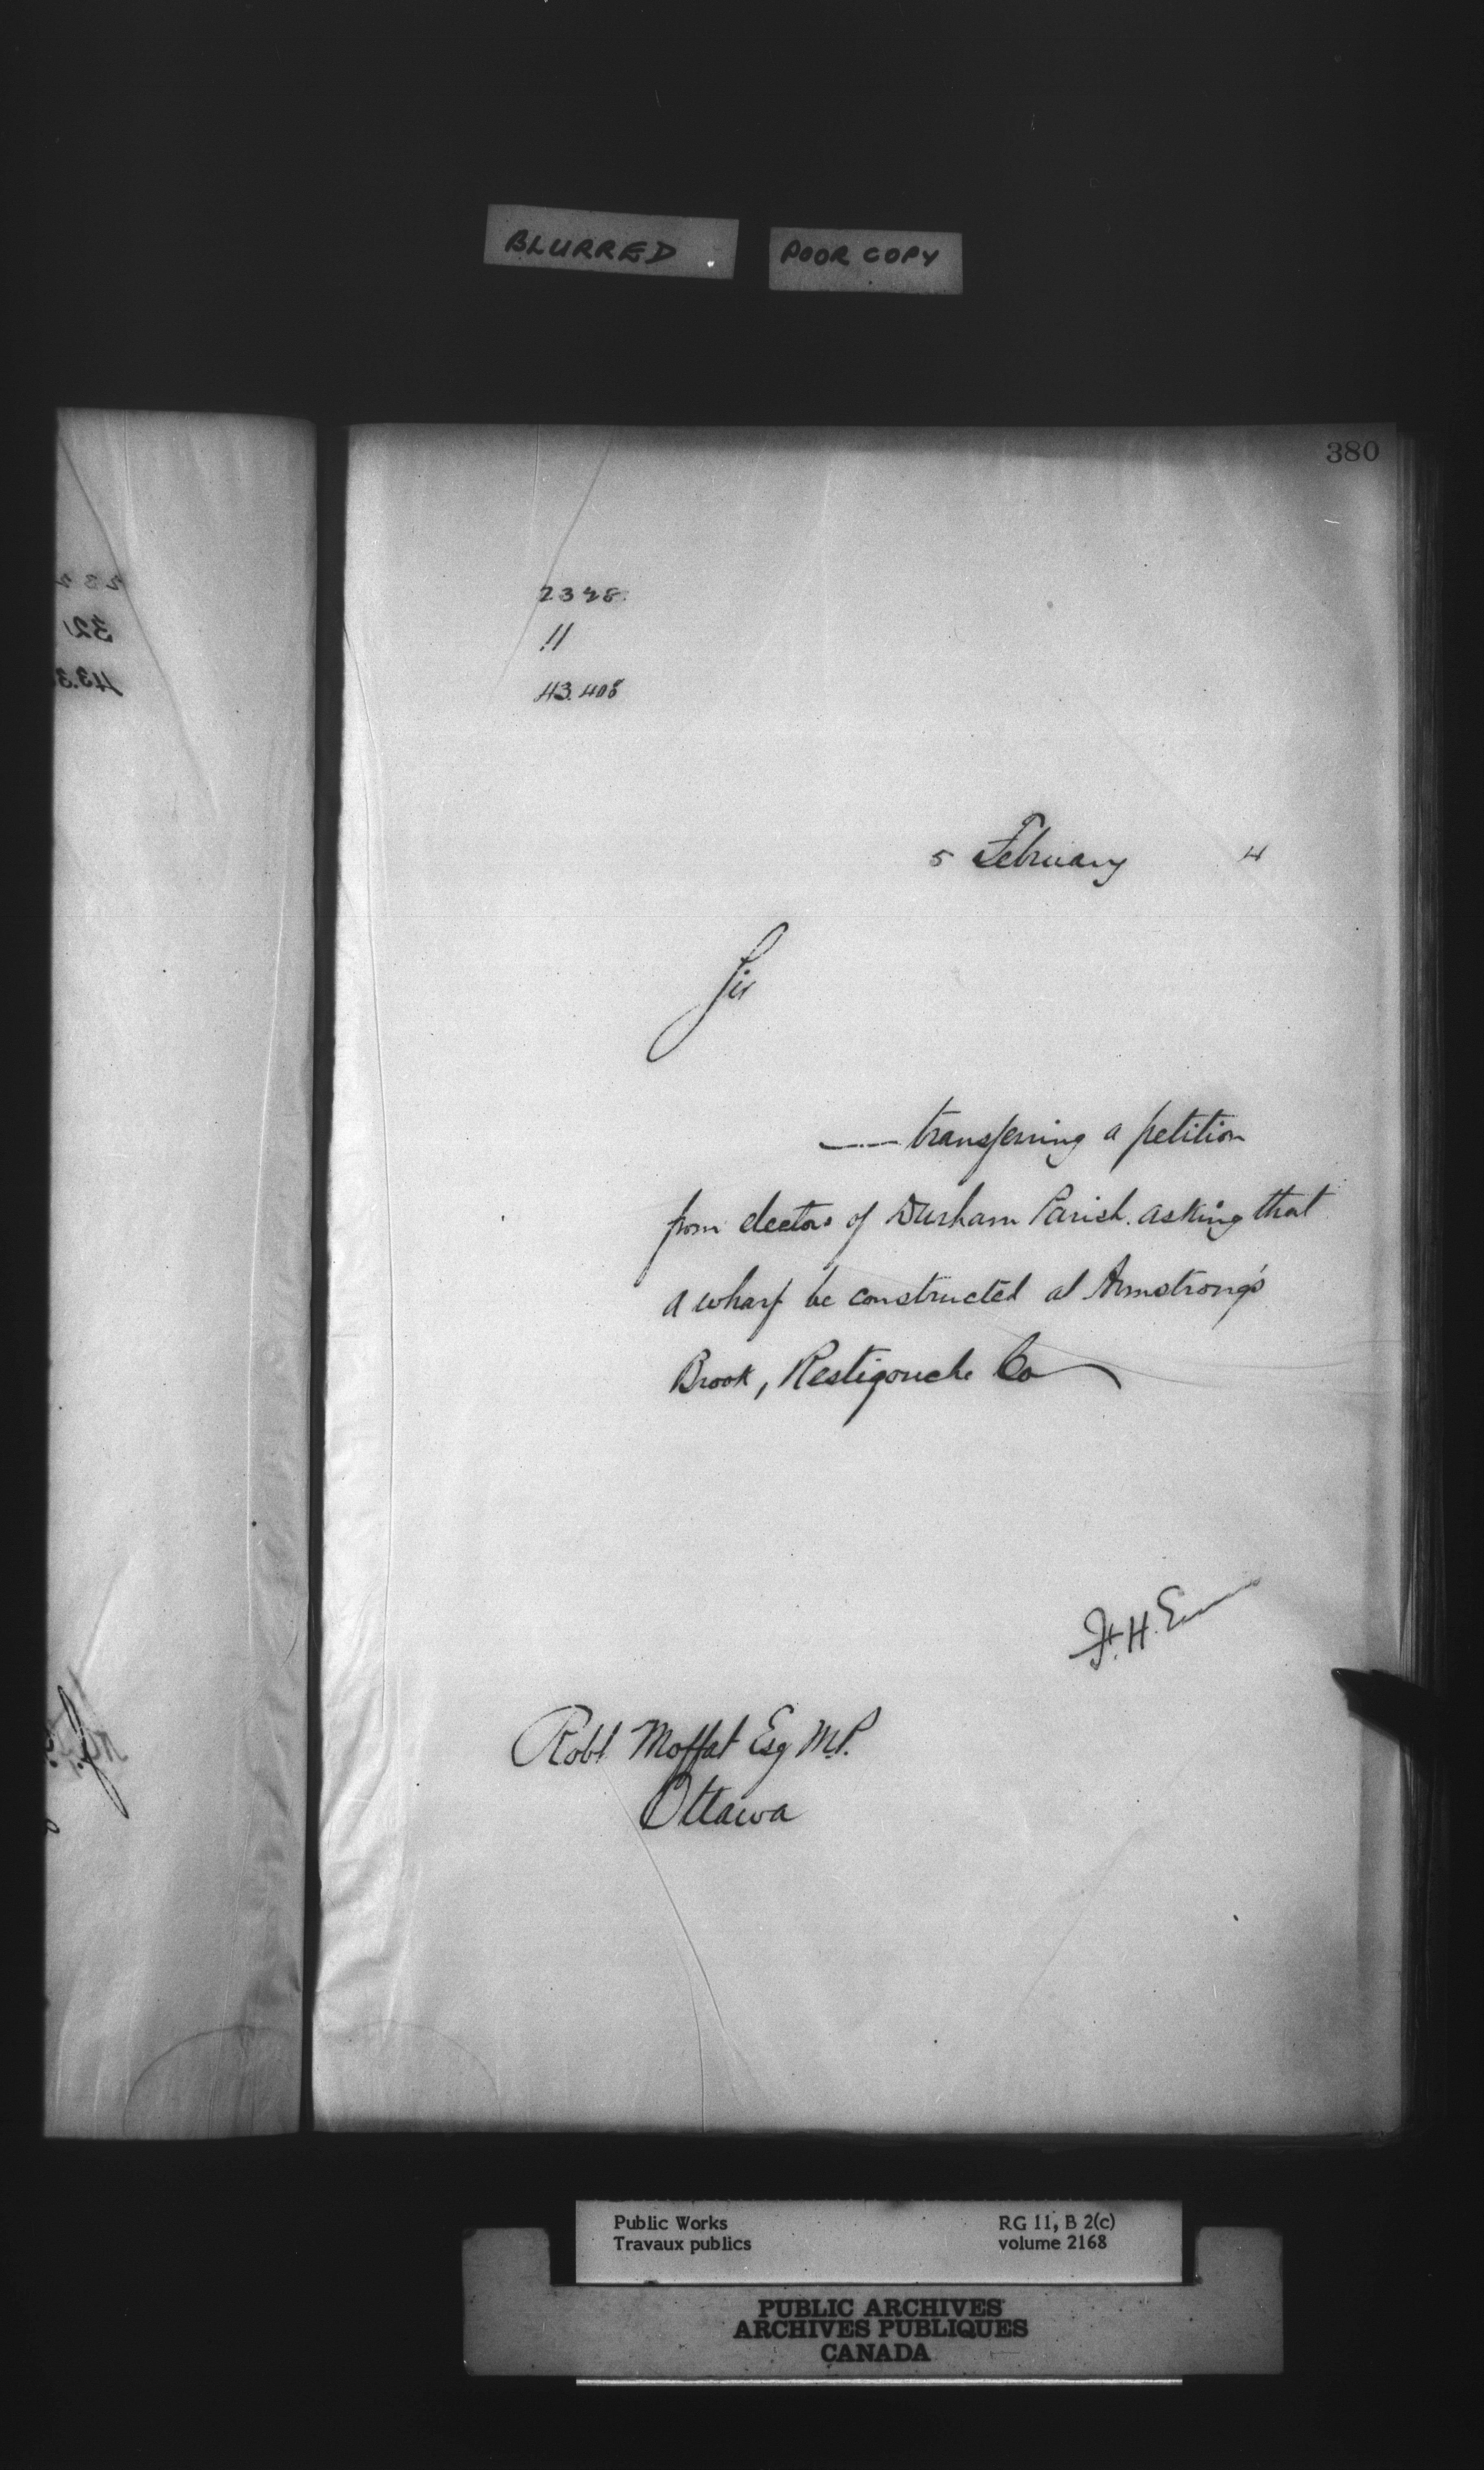 BLURRED
POOR COPY
380
11
43.408
5 February 4
Sir
transferring a petition
from electors of Durham Parish. asking that
a wharf be constructed at Armstrong's
Brook, Restigouche Co
F. H. E
Robt Moffat Esq M.P.
Ottawa
Public Works
Travaux publics
RG 11, B 2(c)
volume 2168
PUBLIC ARCHIVES
ARCHIVES PUBLIQUES
CANADA